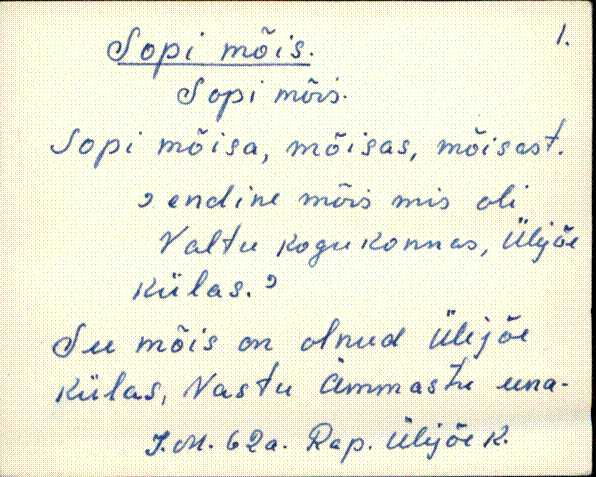 1.
Sopi mõis.
Sopi mõis.
Sopi mõisa, mõisas, mõisast.
ɔ endine mõis mis oli
Valtu kogukonnas, Ülejõe
külas. ɔ
See mõis on olnud Ülejõe
külas, Vastu Ämmastu una-
J.M. 62a. Rap. Ülejõe k.